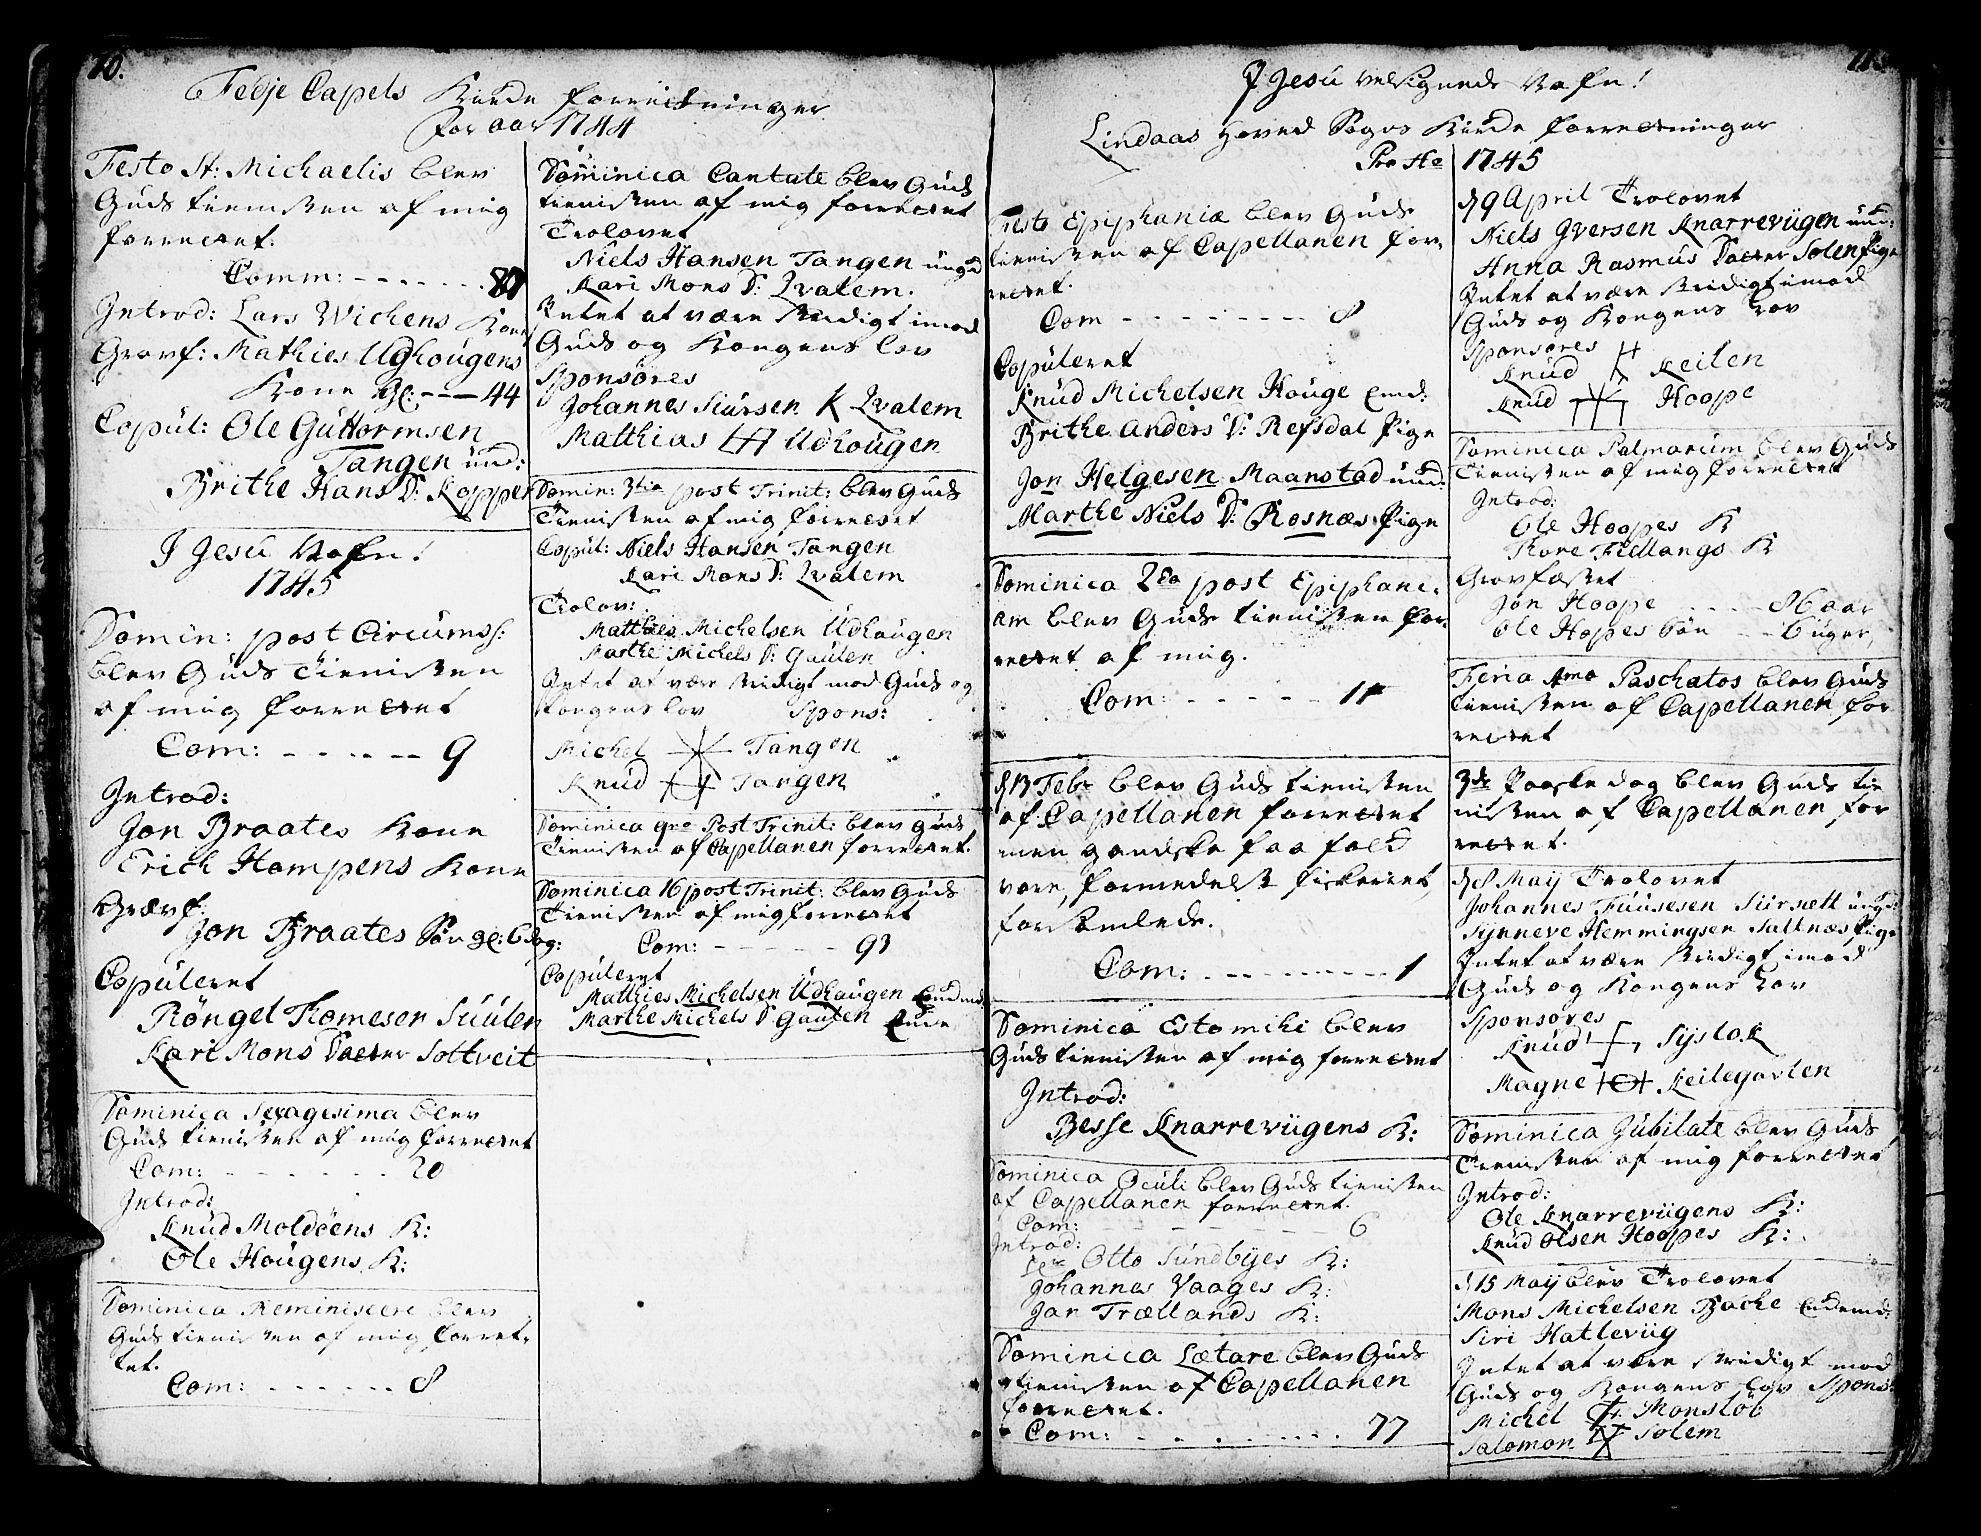 10.
Fedje Capels Kirke forretninger
for aar 1744
Festo St: Michaelis blev
Guds tienesten af mig
forrettet.
Comm: - - - - - - 87
Introd: Lars Wichens Kone
Gravf: Mathies Udhougens
Kone Gl: - - - 44
Copul: Ole Guttormsen
Tangen und:
Brithe Hans D: Kopper
I Jesu Nafn!
1745
Domin: post Circumss:
blev Guds Tienesten
af mig forrettet
Com: - - - - - - 9
Introd:
Jon Braates Kone
Erich Hampens Kone
Grævf:
Jon Braates Søn gl: 6 dag:
Copuleret
Röngel Thomesen Suulen
Kari Mons Datter Soltveit
Dominica Sexagesima blev
Guds tienesten af mig forrettet
Com: - - - - - - 20
Introd:
Knud Moldöens K:
Ole Hougens K:
Dominica Reminiscere blev
Guds tienesten af mig forret-
tet.
Com: - - - - - - 8
Dominica Cantate blev Guds
tienesten af mig forrettet
Trolovet
Niels Hansen Tangen ungd
Kari Mons D: Qvalem.
Intet at være stridigt imod
Guds og Kongens Lov
Sponsores
Johannes Siursen K Qvalem
Matthias Udhougen
Domin: 3tia post Trinit: blev Guds
Tienesten af mig forrettet
Copul: Niels Hansen Tangen
Kari Mons D: Qvalem
Trolov:
Matthies Michelsen Udhaugen
Marthe Michels D: Gaulen
Intet at være stridigt mod Guds og
Kongens Lov Spons:
Michel Tangen
Knud Tangen
Dominica 9na Post Trinit: blev Guds
Tienesten af Capellanen forrettet.
Dominica 16 post Trinit: blev Guds
Tienesten af mig forrettet
Com: - - - - - - 93
Copuleret
Matthies Michelsen Udhaugen Enkem:
Marthe Michels D: Gaulen Enke
11.
I Jesu velsignede Nafn!
Lindaas Hoved Sogns Kirke forretninger
Pro Ao 1745
Festo Epiphaniæ blev Guds
tienesten af Capellanen for-
rettet.
Com - - - - - - - - 8
Copuleret
Knud Michelsen Houge Enk:
Brithe Anders D: Refsdal Pige
Jon Helgesen Maanstad und:
Marthe Niels D: Rosnæs Pige
Dominica 2da post Epiphani-
am blev Guds tienesten for-
rettet af mig.
Com: - - - - - 11
d 13 Febr blev Guds tienesten
af Capellanen forrettet
men gandske faa folk
vare, formedelst fiskeriet,
forsamlede.
Com: - - - - - - - - 1
Dominica Estomihi blev
Guds tienesten af mig forrettet
Introd:
Besse Knarreviigens K:
Dominica Oculi blev Guds tienesten
af Capellanen forrettet.
Com: - - - - - - 6
Introd:
Otto Sundbyes K:
Johannes Vaages K:
Jan Trællands K:
Dominica Lætare blev Guds
tienesten af Capellanen
forrettet.
Com: - - - - - - - - 77
d 9 April Trolovet
Niels Iversen Knarreviigen und:
Anna Rasmus Datter Solem Pige
Intet at være stridigt imod
Guds og Kongens Lov
Sponsores
Knud Keilen
Knud Hoope
Dominica Palmarum blev Guds
Tienesten af mig forrettet
Introd:
Ole Hoopes K
Tore Fiellangs K
Gravfæstet
Jon Hoope - - - - 86 aar
Ole Hopes Søn - - 6 uger,
Feria 1ma Paschatos blev Guds
tienesten af Capellanen for
rettet
3de Paaske dag blev Guds tie
nesten af Capellanen for
rettet.
d 8 Maij Trolovet
Johannes Fuusesen Siursætt ungd:
Synneve Hemmingsen Saltnæs Pige
Intet at være stridigt imod
Guds og Kongens Lov
Sponsores
Knud Syslok
Magne Keilegavlen
Dominica Jubilate blev Guds
Tienesten af mig forrettet
Introd:
Ole Knarreviigens K:
Knud Olsen Hoopes K:
d 15 Maij blev Trolovet
Mons Michelsen Bache Enkem:
Siri Hatleviig
Intet at være stridigt mod
Guds og Kongens Lov Spons:
Michel Monslöb
Salomon Solem